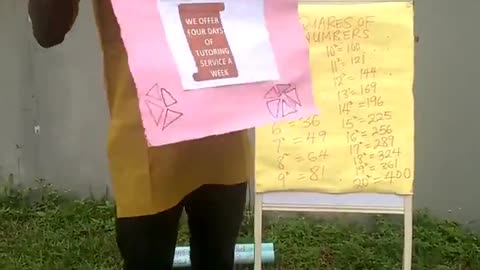 WE OFFER
FOUR DAYS
OF
TUTORING
SERVICE A
WEEK
UARES OF
NUMBERS
10² = 100
11² = 121
12² = 144
13² = 169
14² = 196
15² = 225
16² = 256
17² = 289
18² = 324
19² = 361
20² = 400
6² = 36
7² = 49
8² = 64
9² = 81